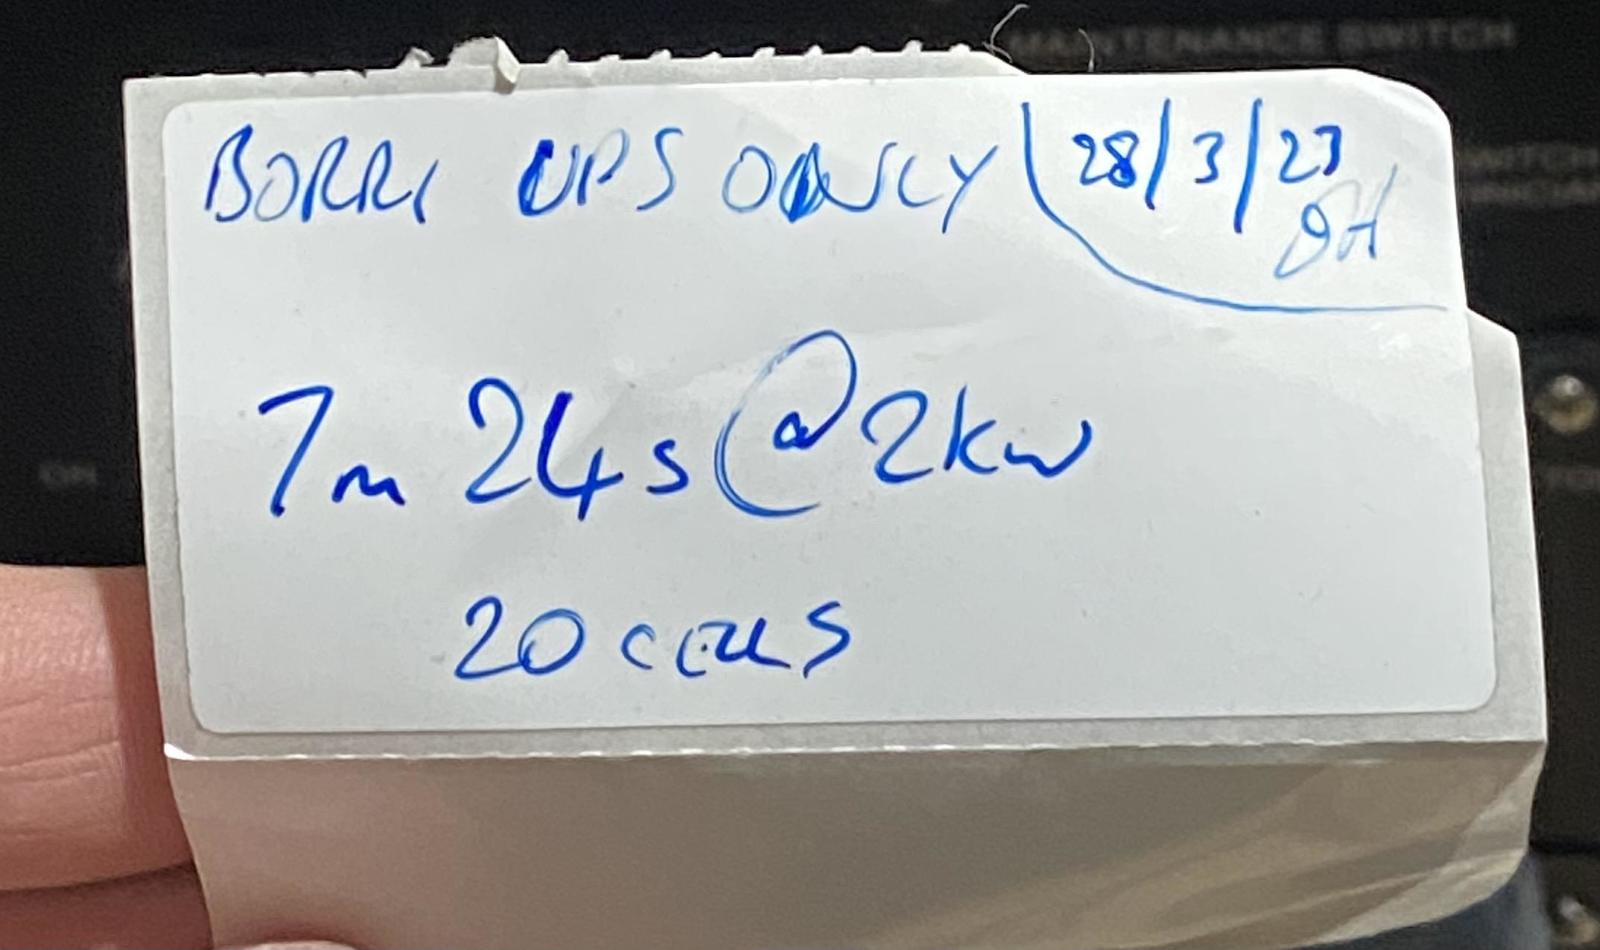 MAINTENANCE SWITCH
BORRI UPS ONLY
28/3/23
DH
7m 24s @ 2kw
20 CELLS
SWITCH